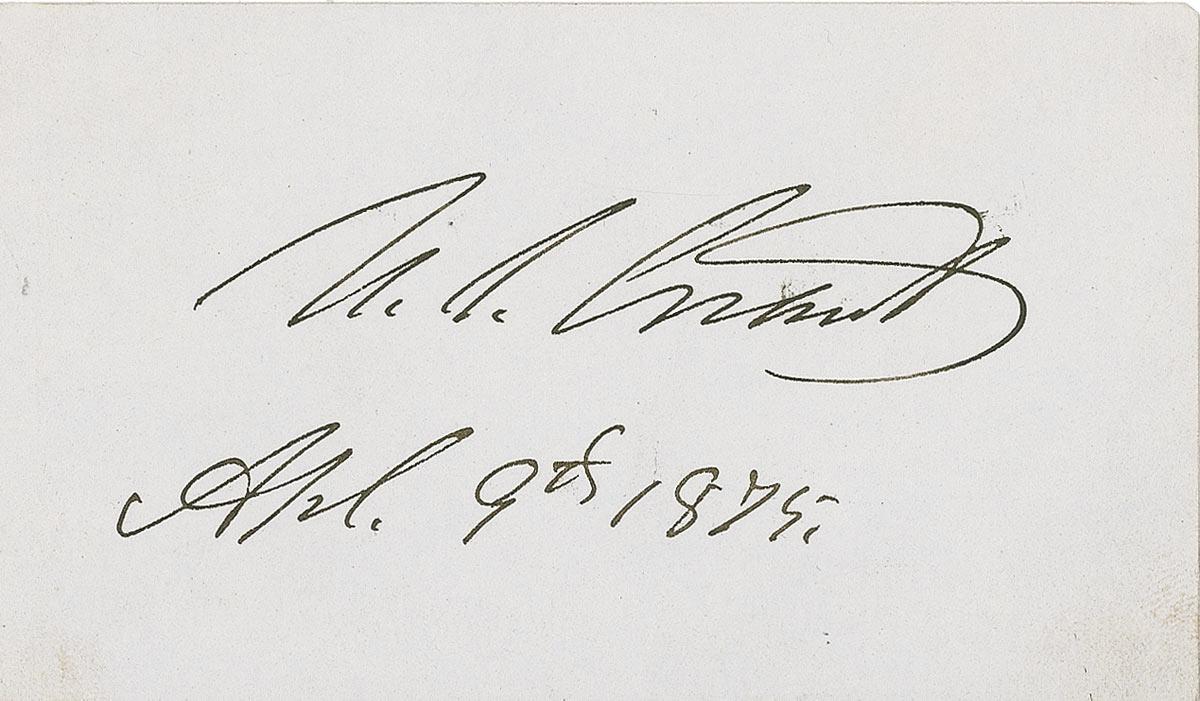 U. S. Grant
Apl. 9th 1875.